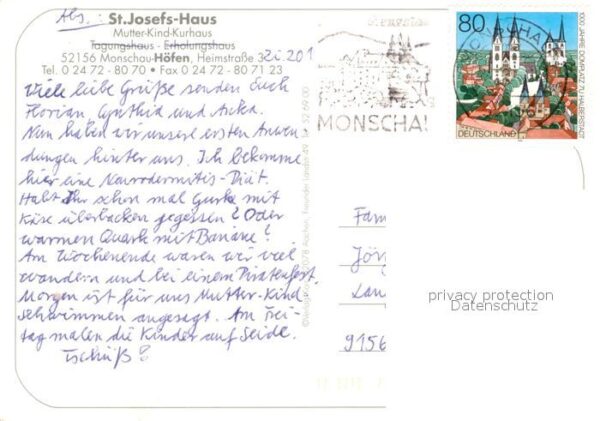 Abs.:
St.Josefs-Haus
Mutter-Kind-Kurhaus
Tagungshaus - Erholungshaus
52156 Monschau-Höfen, Heimstraße 3 Zi. 201
Tel. 0 24 72 - 80 70 • Fax 0 24 72 - 80 71 23
Viele liebe Grüße senden Euch
Florian, Cynthia und
Nun haben wir unsere ersten Anwen
dungen hinter uns. Ich bekomme
hier eine Neurodermitis-Diät.
Habt Ihr schon mal Gurke mit
Käse überbacken gegessen? Oder
warmen Quark mit Banane?
Am Wochenende waren wir viel
wandern und bei einem Piratenfest.
Morgen ist für uns Mutter-Kind
schwimmen angesagt. Am Frei-
tag malen die Kinder auf Seide.
Tschüß
MONSCHA
80
DEUTSCHLAND
1000 JAHRE DOMPLATZ ZU HALBERSTADT
Fam
Jörg
Lan
9156
privacy protection
Datenschutz